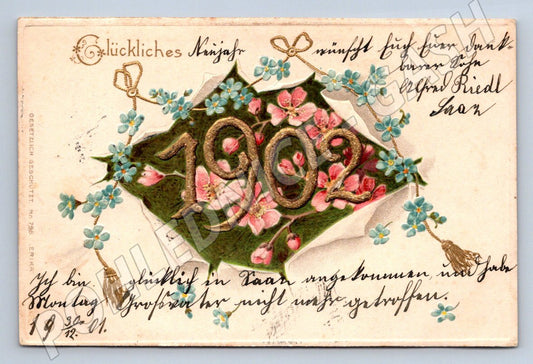 Glückliches Neujahr wünscht Euch Euer dank-
barer Sohn
Alfred Riedl
Saaz
1902
GESETZLICH GESCHÜTZT. No 796
Ich bin glücklich in Saaz angekommen und habe
Montag Grossvater nicht mehr getroffen.
19 30/12. 01.